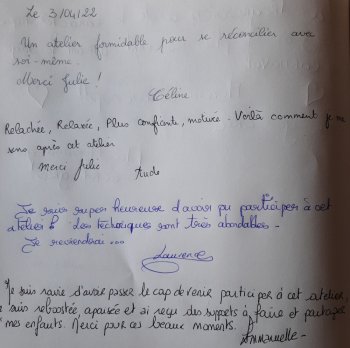 Le 3/04/22
Un atelier formidable pour se réconcilier avec
soi-même.
Merci Julie !
Céline
Relachée, Relaxée, Plus confiante, motivée. Voilà comment je me
sens après cet atelier
Merci Julie
Aude
Je suis super heureuse d'avoir pu participer à cet
atelier. Les techniques sont très abordables.
Je reviendrai...
Laurence
Je suis ravie d'avoir passer le cap de venir participer à cet atelier,
suis reboostée, apaisée et ai reçu des supports à faire et partager
mes enfants. Merci pour ces beaux moments. Emmanuelle-